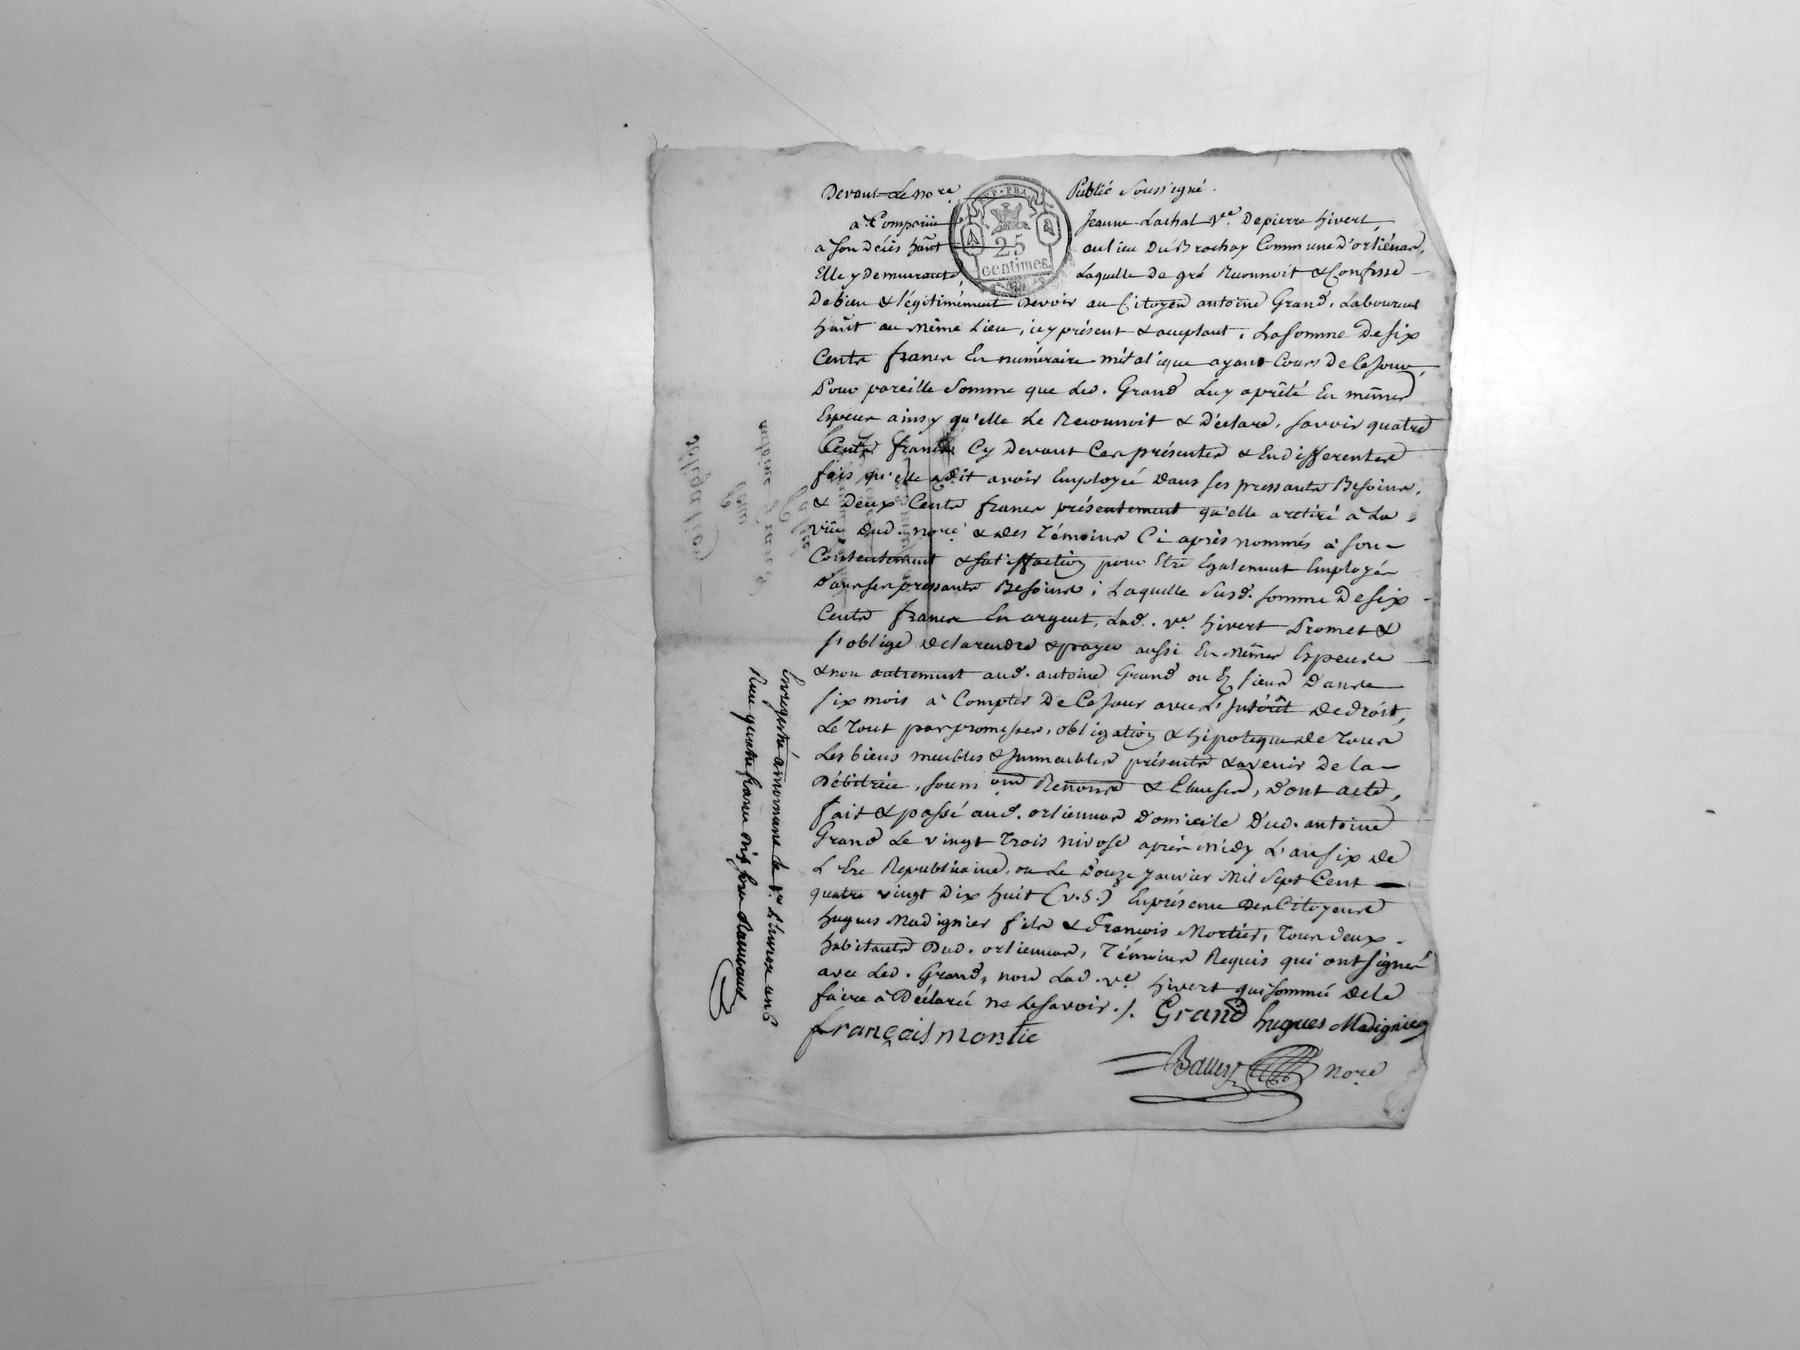 Devant Le no.re Public Soussigné.
REP. FRA.
25
centimes
a Comparüe Jeanne Lachal V.e De pierre hivert,
a son Déces hãnt au lieu Du Brochay Commune d'orliénas,
Elle y Demeurante, Laquelle De gré Reconnoit & Confesse
De bien & légitimément Devoir au Citoyen antoine Grand, Laboureur
hãnt au Même Lieu, icy présent & acceptant, La somme De six
Cents francs En numéraire métalique ayant Cours De Ce jour,
Pour pareille Somme que Led. Grand Luy a prêté En mêmes
Especes ainsy qu'elle Le Reconnoit & Déclare, savoir quatre
Cents francs Cy Devant Ces présentes & En differentes
fois qu'elle a dit avoir Employée Dans ses pressants Besoins,
& Deux Cents francs présentement qu'elle a retiré à La
vüe Dud. no.re & des Témoins Ci après nommés à son
Contentement & satisffaction pour Etre Egalement Employés
Dans ses pressants Besoins; Laquelle Susd. somme De six
Cents francs En argent, Lad. v.e hivert Promet &
s'oblige De La rendre & payer aussi En Mêmes Especes
& non autrement aud. antoine Grand ou Es siens Dans
six mois à Compter De Ce Jour avec L'Intérêt De droit,
Le Tout par promesses, obligation & hipoteque de Tous
Les biens meubles & Immeubles présents & avenir De la
Débitrice, soum.ons Renonc.ons & Clauses, Dont acte,
fait & passé aud. orliennas Domicile Dud. antoine
Grand Le vingt Trois nivose après Midy L'an six De
L'Ere Républicaine, ou Le Douze Janvier Mil Sept Cent
quatre vingt Dix huit (v.S.) En présence Des Citoyens
hugues Madignier fils & François Mortier, Tous deux
habitants Dud. orliennas, Témoins Requis qui ont signé
avec Led. Grand, non Lad. v.e hivert qui sommée De le
faire à Déclaré ne Le savoir./. Grand hugues Madignier
françois mortie
no.re
Enregistré à mornant le
Reçu quatre francs dix